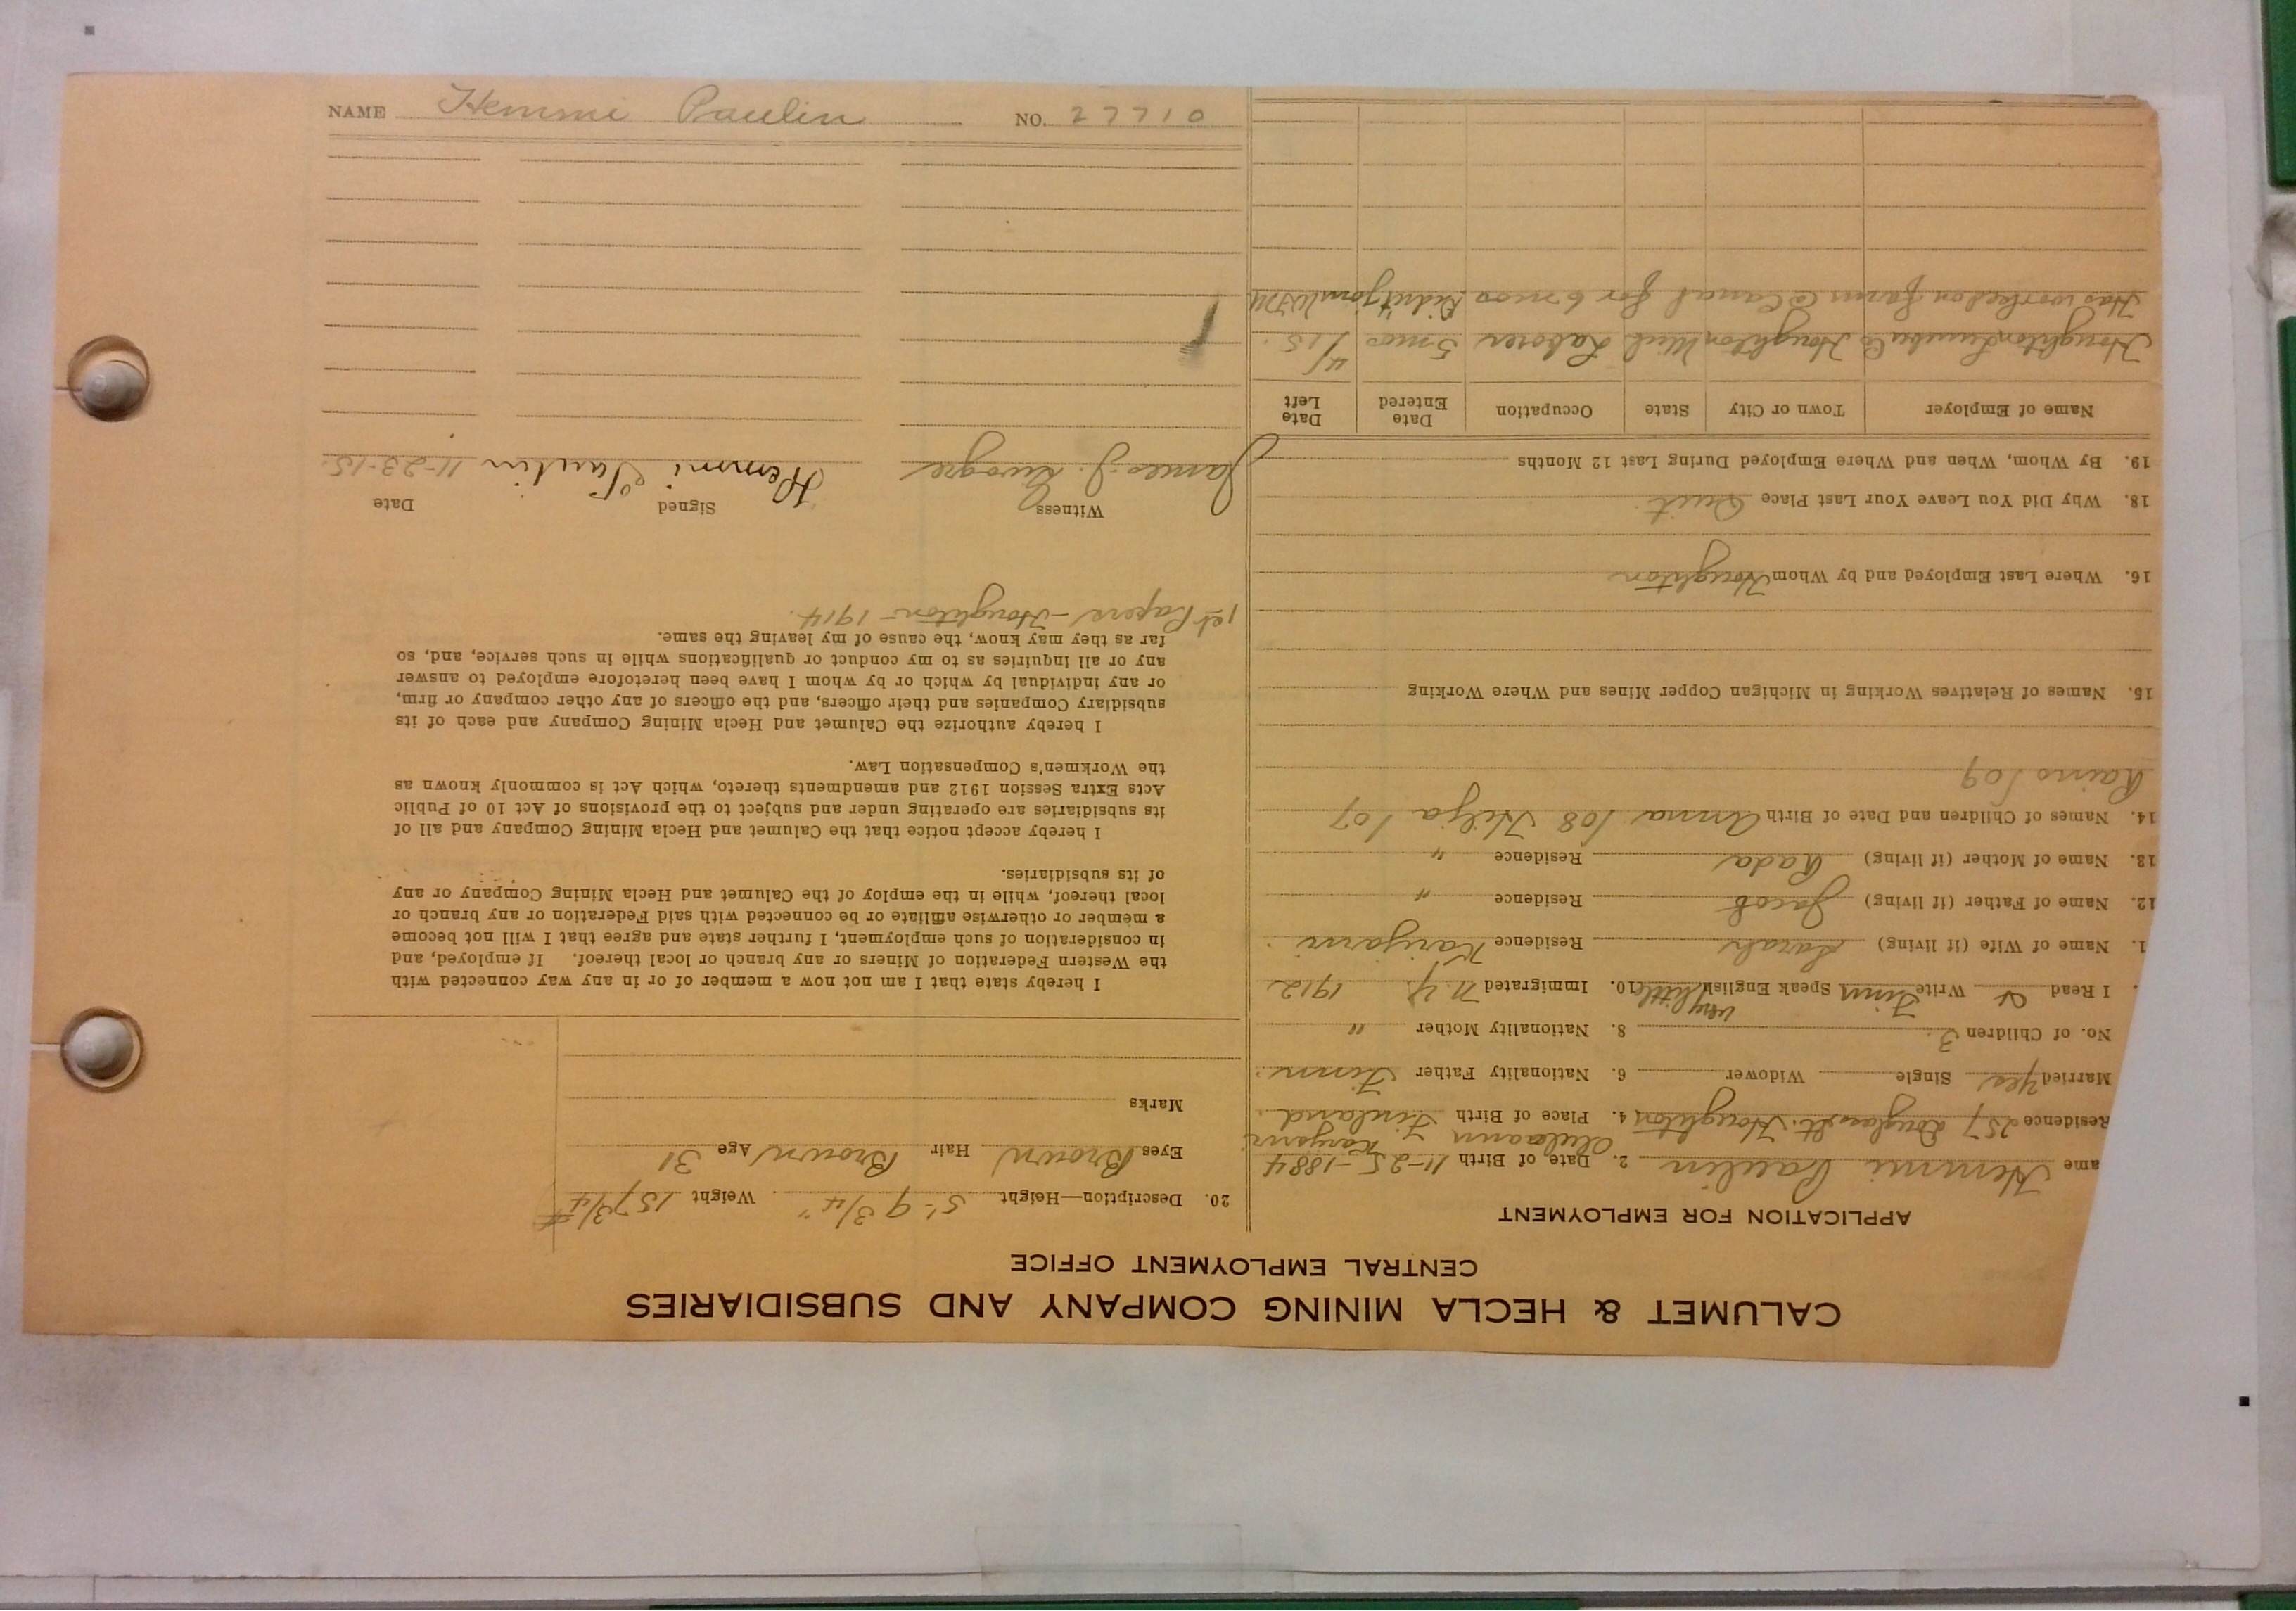 CALUMET & HECLA MINING COMPANY AND SUBSIDIARIES
CENTRAL EMPLOYMENT OFFICE
APPLICATION FOR EMPLOYMENT
ame Hemmi Paulin 2. Date of Birth 11-25-1884
Residence 257 Douglas St. Houghton 4. Place of Birth Finland
Married Yes Single Widower 6. Nationality Father Finn
No. of Children 3 8. Nationality Mother "
. I Read & Write Finn Speak English very little 10. Immigrated N. Y. 1912
1. Name of Wife (if living) Sarah Residence Karijarvi
12. Name of Father (if living) Jacob Residence "
13. Name of Mother (if living) Residence "
14. Names of Children and Date of Birth Anna / 08 Hilja / 07
Raino / 09
15. Names of Relatives Working in Michigan Copper Mines and Where Working
16. Where Last Employed and by Whom Houghton
18. Why Did You Leave Your Last Place Quit
19. By Whom, When and Where Employed During Last 12 Months
Name of Employer Town or City State Occupation Date Entered Date Left
Houghton Lumber Co Houghton Mich Laborer 5 mos 4/15.
Has worked on farm @ Canal for 6 mos Didn't join WFM
20. Description—Height 5'- 9 3/4" Weight 157 3/4 #
Eyes Brown Hair Brown Age 31
Marks
I hereby state that I am not now a member of or in any way connected with
the Western Federation of Miners or any branch or local thereof. If employed, and
in consideration of such employment, I further state and agree that I will not become
a member or otherwise affiliate or be connected with said Federation or any branch or
local thereof, while in the employ of the Calumet and Hecla Mining Company or any
of its subsidiaries.
I hereby accept notice that the Calumet and Hecla Mining Company and all of
its subsidiaries are operating under and subject to the provisions of Act 10 of Public
Acts Extra Session 1912 and amendments thereto, which Act is commonly known as
the Workmen's Compensation Law.
I hereby authorize the Calumet and Hecla Mining Company and each of its
subsidiary Companies and their officers, and the officers of any other company or firm,
or any individual by which or by whom I have been heretofore employed to answer
any or all inquiries as to my conduct or qualifications while in such service, and, so
far as they may know, the cause of my leaving the same.
1st Papers - Houghton - 1914.
Witness Signed Date
James J. Hemmi Paulin 11-23-15.
NAME Hemmi Paulin NO. 27710